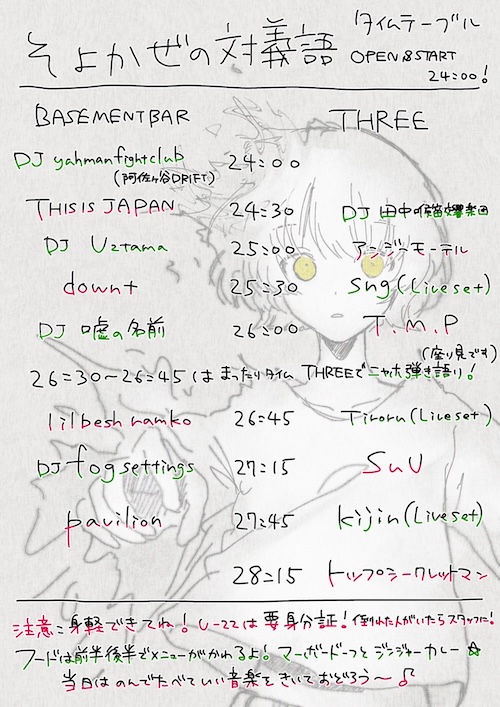 そよかぜの対義語 タイムテーブル
OPEN&START
24:00!
BASEMENTBAR THREE
DJ yahmanfightclub 24:00
(阿佐ヶ谷DRIFT)
THIS IS JAPAN 24:30 DJ 田中の猫響楽団
DJ Uztama 25:00 アンジーモーテル
downt 25:30 Sng(Liveset)
DJ 嘘の名前 26:00 T.M.P
(座り見です)
26:30〜26:45は まったりタイム THREEで ニャホ弾き語り!
lilbesh ramko 26:45 Tiroru(Liveset)
DJ fogsettings 27:15 SuU
pavilion 27:45 kijin(Liveset)
28:15 トップシークレットマン
注意:身軽できてね! U-22は要身分証! 倒れた人がいたらスタッフに!
フードは前半後半でメニューがかわるよ! マーボードーフと ジンジャーカレー☆
当日はのんでたべていい音楽をきいておどろう〜♪